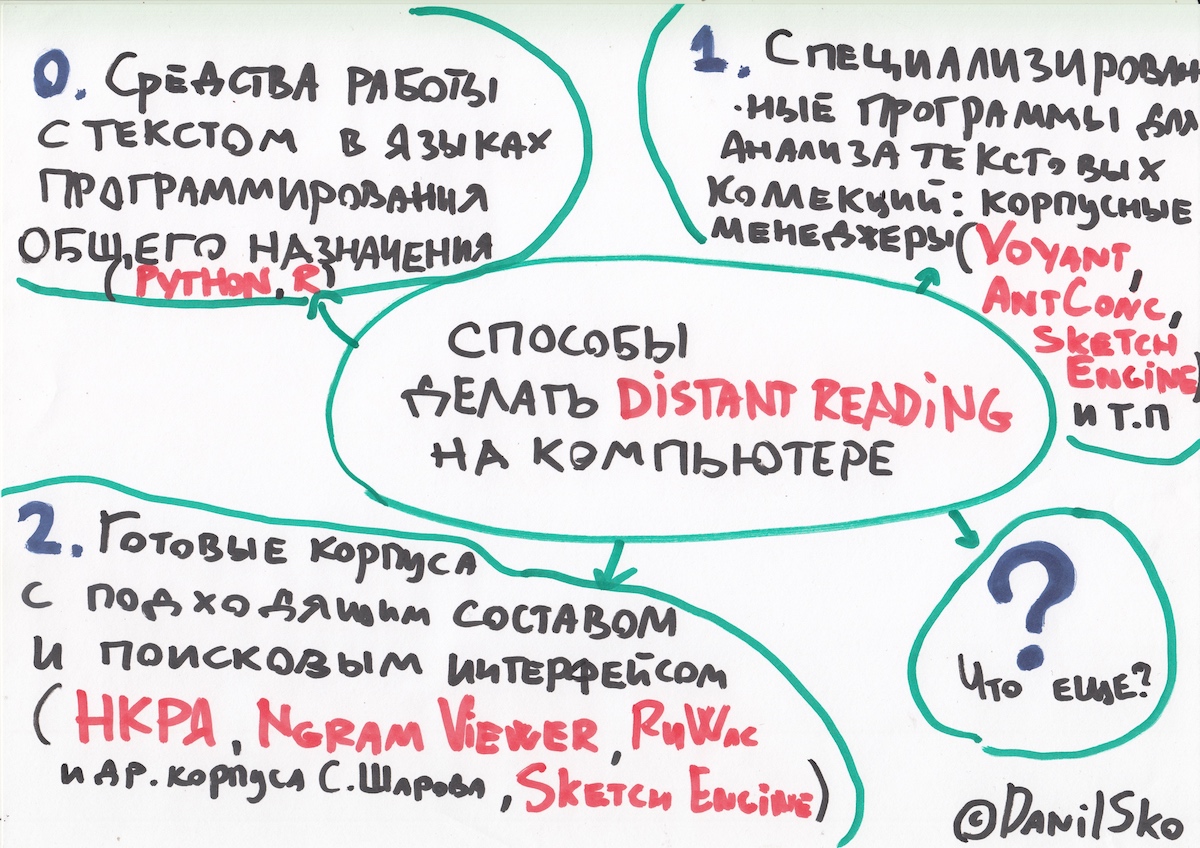 0. СРЕДСТВА РАБОТЫ
С ТЕКСТОМ В ЯЗЫКАХ
ПРОГРАММИРОВАНИЯ
ОБЩЕГО НАЗНАЧЕНИЯ
(PYTHON, R)
1. СПЕЦИАЛИЗИРОВАН
-НЫЕ ПРОГРАММЫ ДЛЯ
АНАЛИЗА ТЕКСТОВЫХ
КОЛЛЕКЦИЙ: КОРПУСНЫЕ
МЕНЕДЖЕРЫ (VOYANT,
ANTCONC,
SKETCH
ENGINE)
И Т.П
СПОСОБЫ
ДЕЛАТЬ DISTANT READING
НА КОМПЬЮТЕРЕ
2. ГОТОВЫЕ КОРПУСА
С ПОДХОДЯЩИМ СОСТАВОМ
И ПОИСКОВЫМ ИНТЕРФЕЙСОМ
(НКРЯ, NGRAM VIEWER, RuWac
И ДР. КОРПУСА С. ШАРОВА, SKETCH ENGINE)
?
ЧТО ЕЩЕ?
© DanilSko